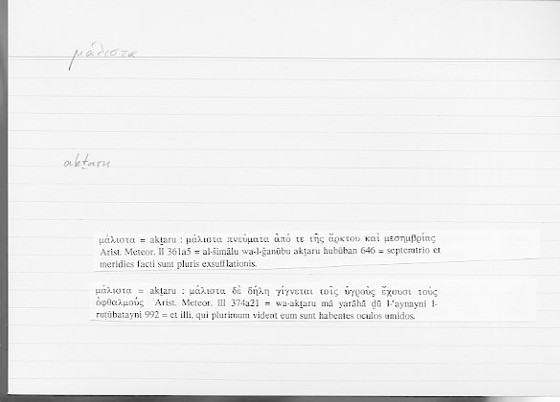 μάλιστα
akṯaru
μάλιστα = akṯaru : μάλιστα πνεύματα ἀπό τε τῆς ἄρκτου καὶ μεσημβρίας
Arist. Meteor. II 361a5 = al-šimālu wa-l-ǧanūbu akṯaru hubūban 646 = septemtrio et
meridies facti sunt pluris exsufflationis.
μάλιστα = akṯaru : μάλιστα δὲ δήλη γίγνεται τοῖς ὑγροὺς ἔχουσι τοὺς
ὀφθαλμούς Arist. Meteor. III 374a21 = wa-akṯaru mā yarāhā ḏū l-ʿaynayni l-
ruṭūbatayni 992 = et illi, qui plurimum vident eum sunt habentes oculos umidos.